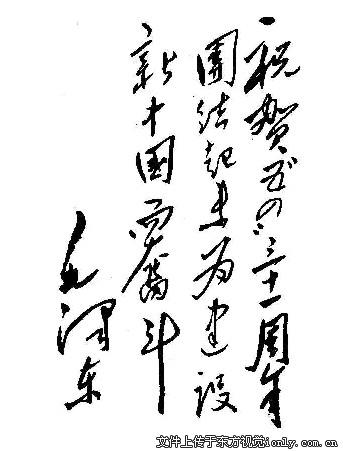 祝贺“五四”三十一周年
團结起来为建设
新中國而奮斗
毛泽东
文件上传于东方视觉ionly.com.cn